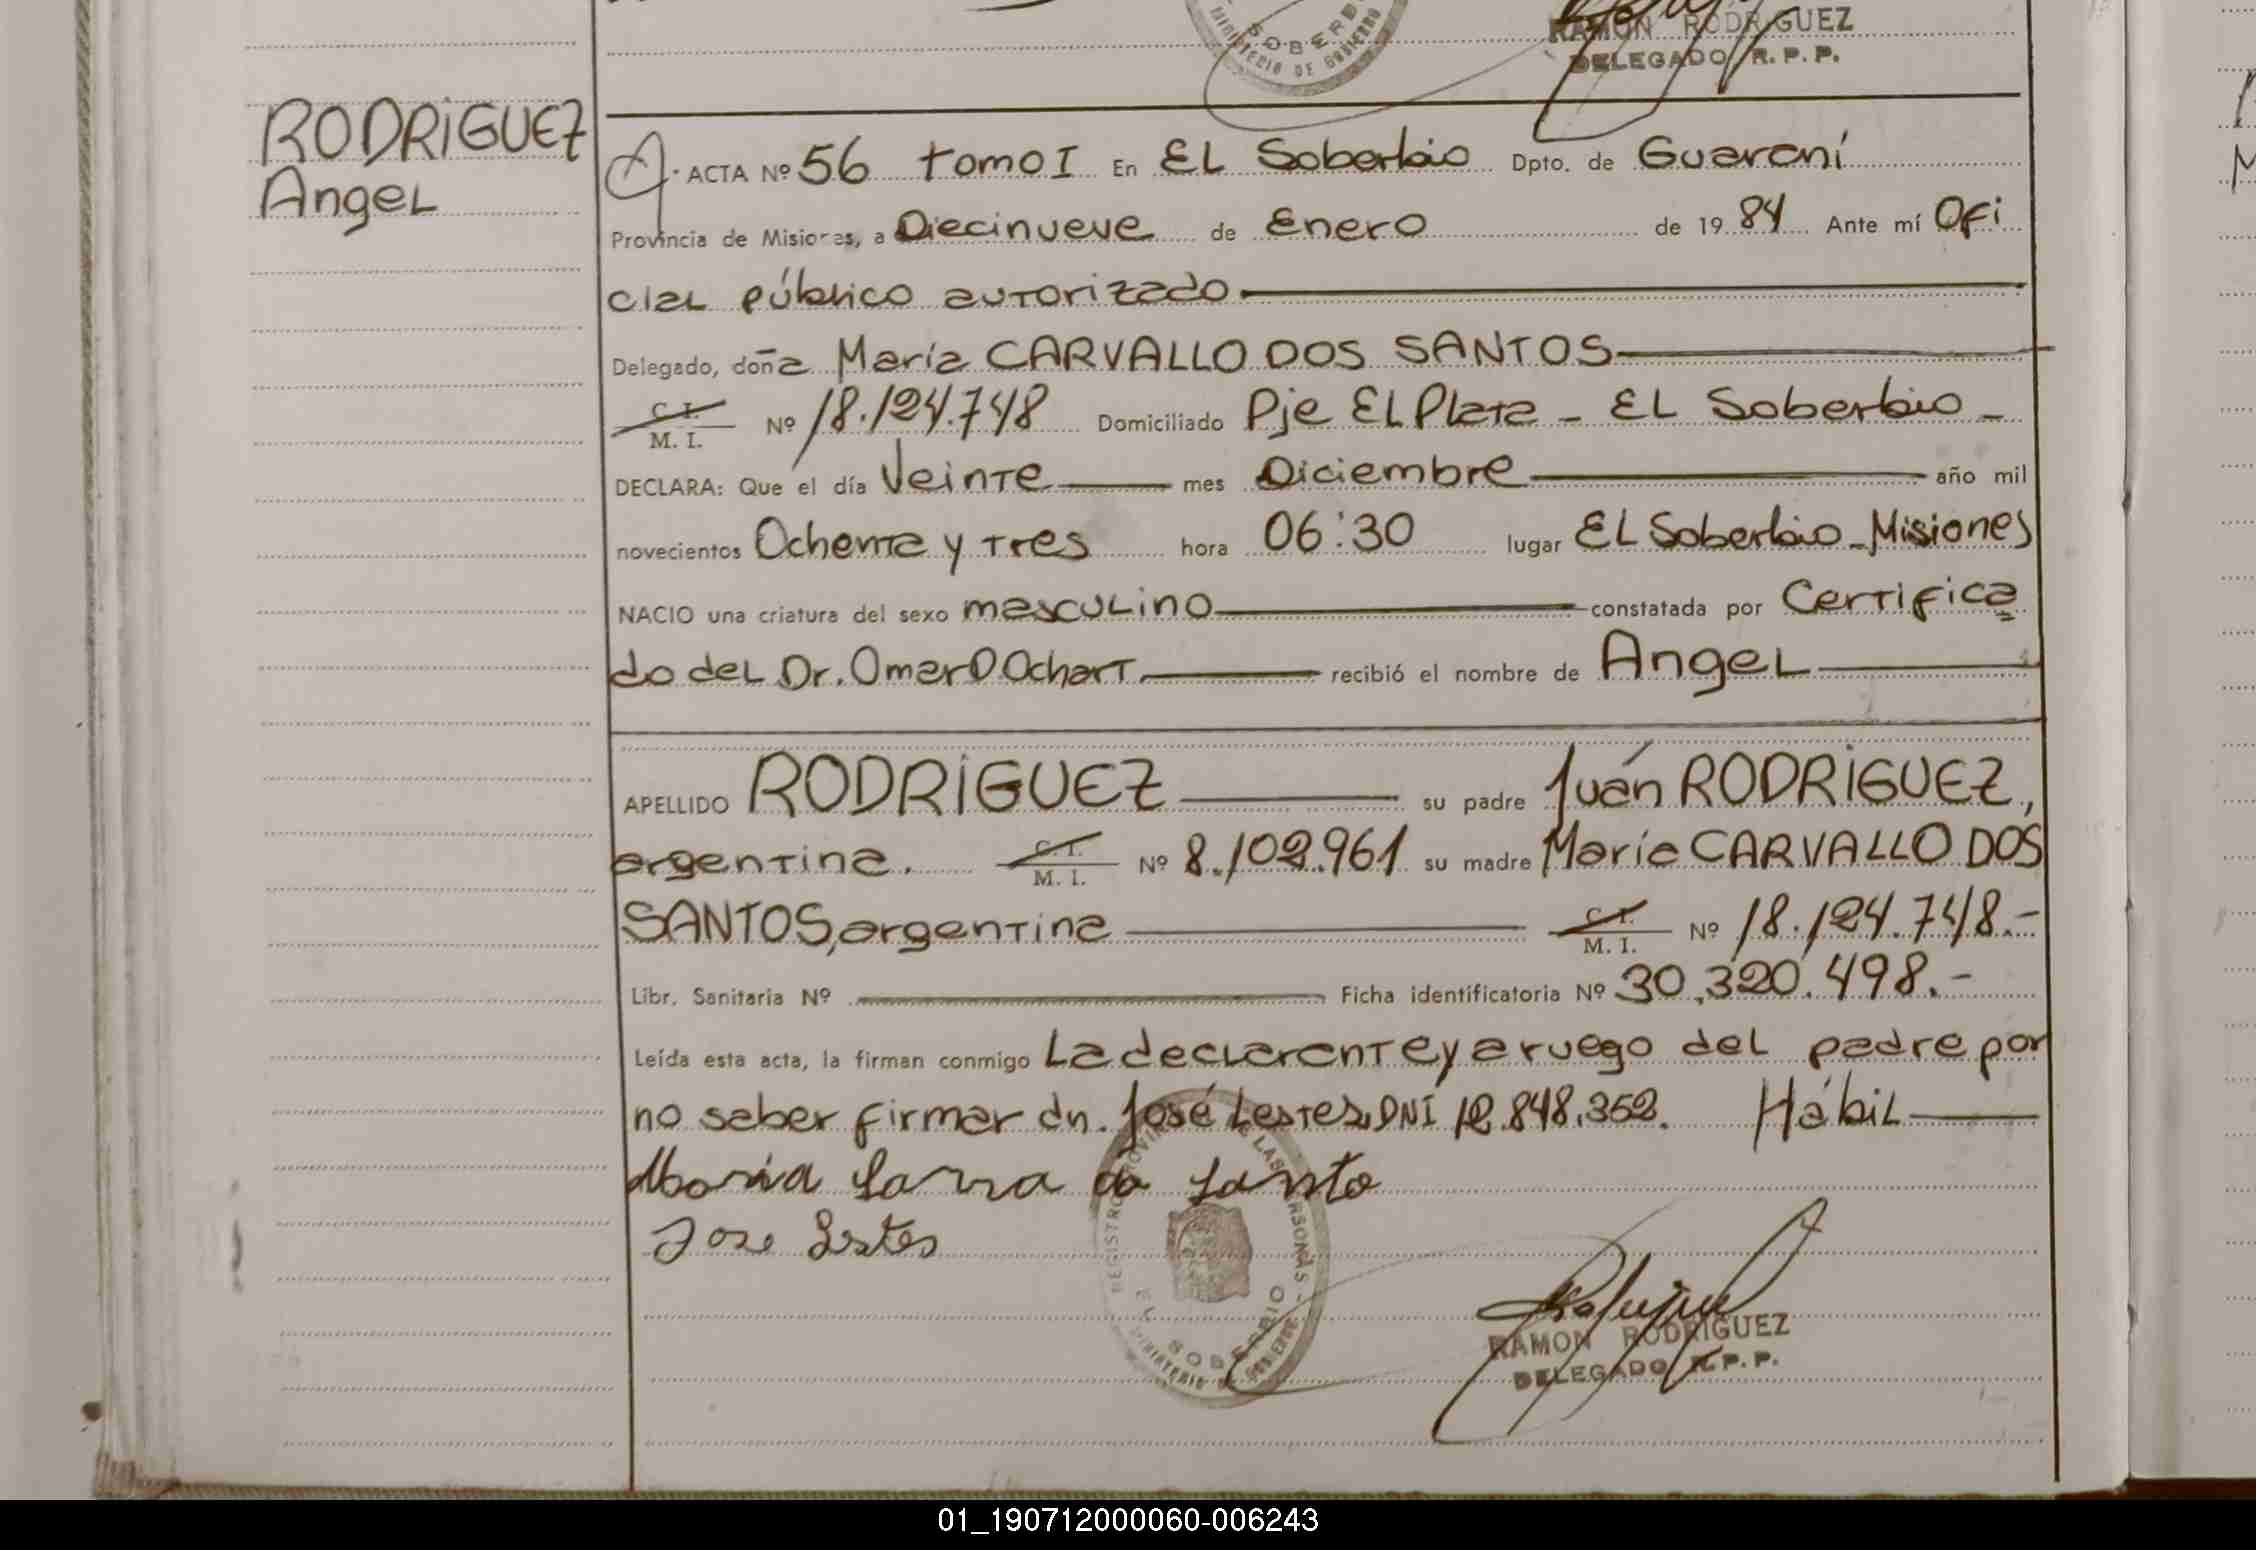 MINISTERIO DE GOBIERNO
SOBERB
RAMON RODRIGUEZ
DELEGADO R. P. P.
RODRIGUEZ
Angel
ACTA Nº 56 tomo I En EL Soberbio Dpto. de Guaraní
Provincia de Misiones, a Diecinueve de Enero de 19 84 Ante mí Ofi
cial público autorizado
Delegado, doña María CARVALLO DOS SANTOS
C. I.
M. I. Nº 18.124.748 Domiciliado Pje El Plata - EL Soberbio -
DECLARA: Que el día Veinte mes Diciembre año mil
novecientos Ochenta y Tres hora 06:30 lugar EL Soberbio - Misiones
NACIO una criatura del sexo masculino constatada por Certifica
do del Dr. Omar O Ochart. recibió el nombre de Angel
APELLIDO RODRIGUEZ su padre Juán RODRIGUEZ,
argentina. C. I.
M. I. Nº 8.102.961 su madre María CARVALLO DOS
SANTOS, argentina C. I.
M. I. Nº 18.124.748.-
Libr. Sanitaria Nº Ficha identificatoria Nº 30.320.498.-
Leída esta acta, la firman conmigo La declarante y a ruego del padre por
no saber firmar dn. José Lestes, DNI 12.848.352. Hábil
Jose Lestes
EL SOBERBIO
MINISTERIO DE GOBIERNO
RAMON RODRIGUEZ
DELEGADO R. P. P.
01_190712000060-006243